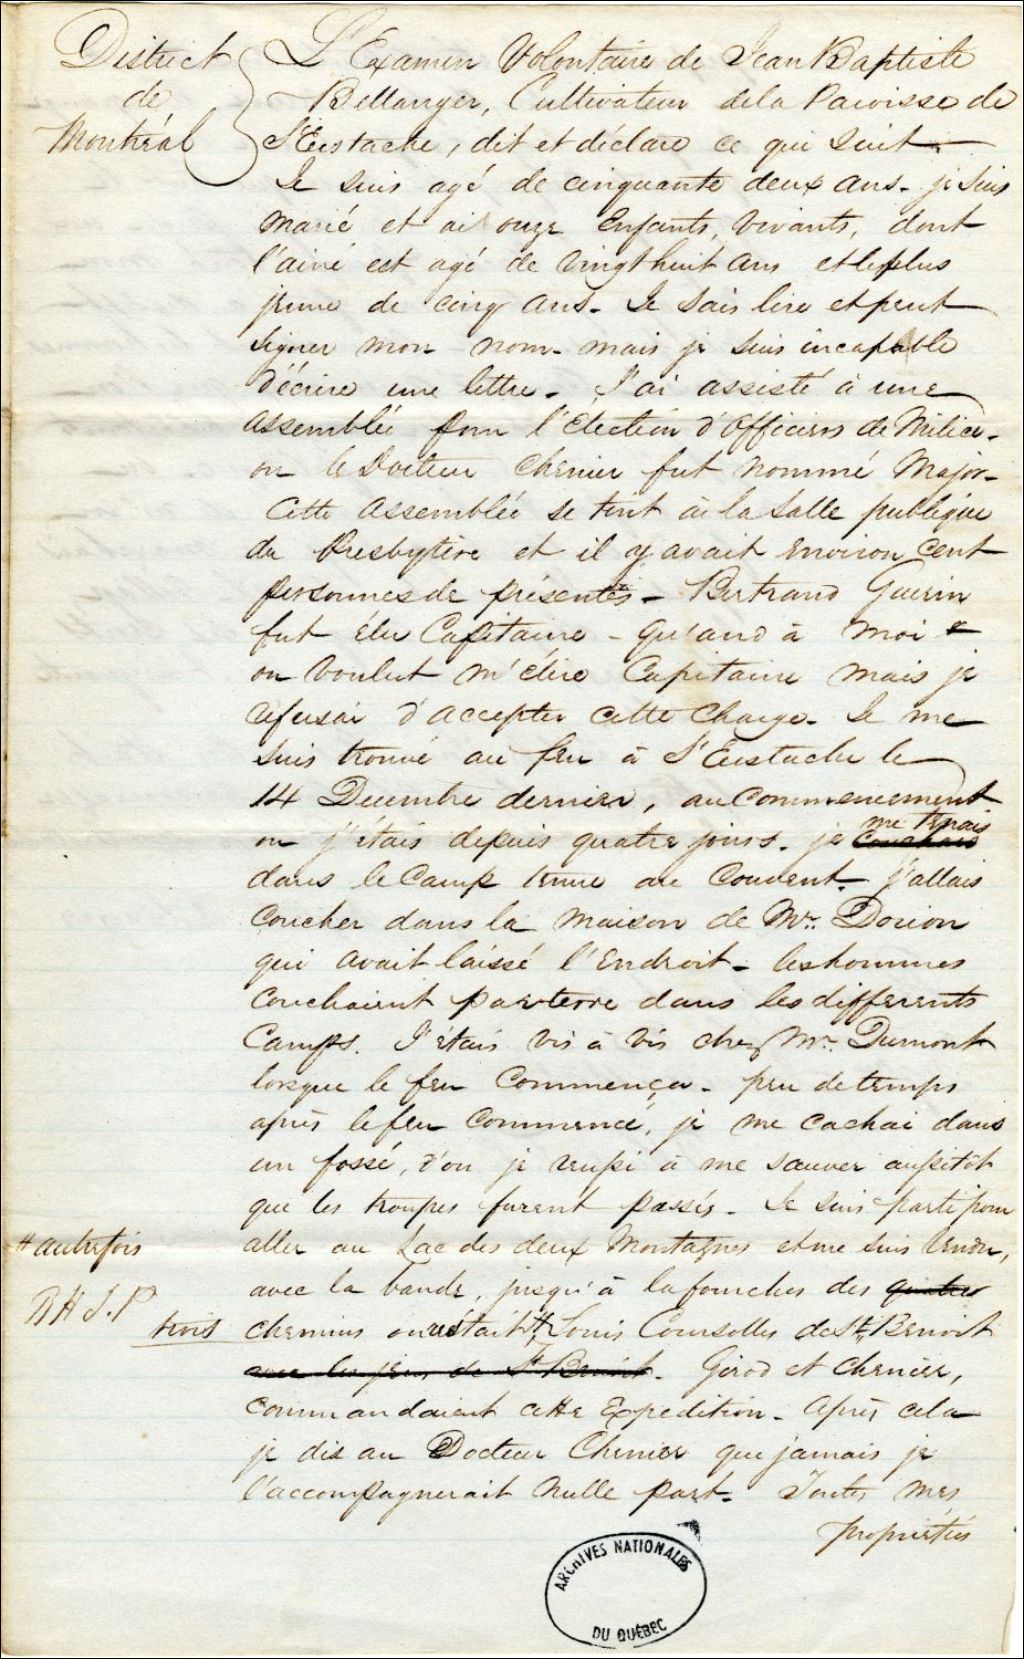 District
de
Montréal
L'Examen Volontaire de Jean Baptiste
Bellanger, Cultivateur dela Paroisse de
St Eustache, dit et déclare ce qui suit.
Je suis agé de cinquante deux ans. je suis
marié et ai onze Enfants, vivants, dont
l'ainé est agé de vingthuit ans et le plus
jeune de cinq ans. Je sais lire et peut
signer mon nom. mais je suis incapable
d'écrire une lettre. J'ai assisté à une
assemblée pour l'Election d'officiers de Milice.
ou le Docteur Chenier fut nommé Major.
Cette assemblée se tint à la Salle publique
du Presbytère et il y avait environ cent
personnes de présentes. Bertrand Guerin
fut élu Capitaine - Qu'and à moi
on voulut m'élire Capitaine mais je
refusai d'accepter cette charge. Je me
suis trouvé au feu à St Eustache le
14 Decembre dernier, au Commencement
me tenais
ou j'étais depuis quatre jours. je couchais
dans le Camp tenue au Couvent. j'allais
coucher dans la maison de Mr. Dorion
qui avait laissé l'Endroit. les hommes
couchaient par terre dans les differents
Camps. J'étais vis à vis chez Mr. Dumont
lorsque le feu Commença. peu de temps
après le feu Commencé, je me cachai dans
un fossé, d'ou je reussi à me sauver aussitôt
que les troupes furent passés. Je suis parti pour
aller au Lac des deux Montagnes et me suis rendu,
# autrefois
avec la bande, jusqu'à la fourches des quatre
B H J.P
trois
chemins ou restait # Louis Coursolles de St. Benoit
avec les gens de St Benoit. Girod et Chenier,
commandaient cette Expedition. Après cela
je dis au Docteur Chenier que jamais je
l'accompagnerait nulle part. Toutes mes
propriétés
ARCHIVES NATIONALES
DU QUÉBEC